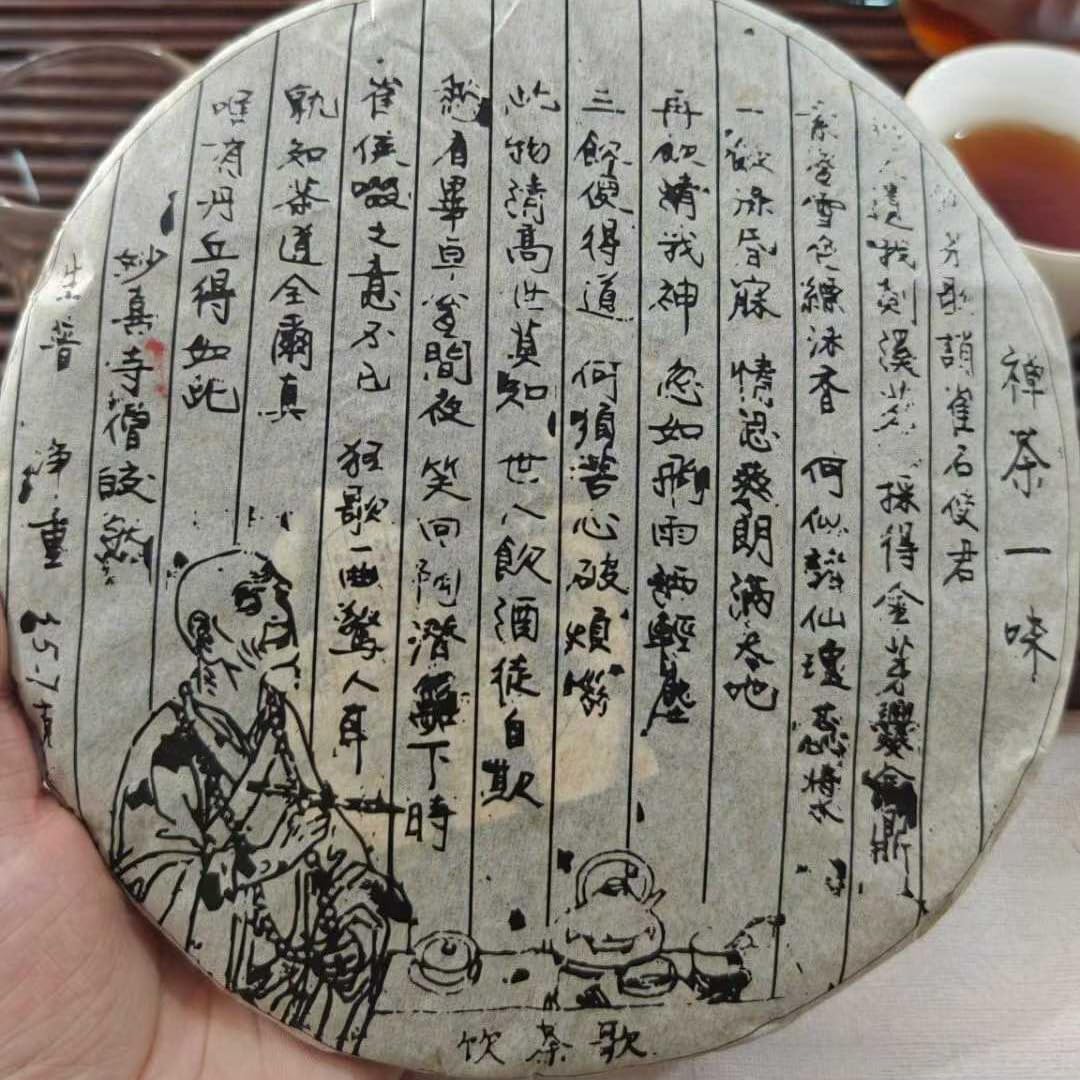 禅茶一味
茶歌誚崔石使君
人遺我剡溪茗 採得金芽爨金鼎
素瓷雪色縹沫香 何似諸仙瓊蕊漿
一飲滌昏寐 情思爽朗滿天地
再飲清我神 忽如飛雨洒輕塵
三飲便得道 何須苦心破煩惱
此物清高世莫知 世人飲酒徒自欺
愁看畢卓瓮間夜 笑向陶潛籬下時
崔侯啜之意不已 狂歌一曲驚人耳
孰知茶道全爾真
唯有丹丘得如此
妙喜寺僧皎然
生普 净重 357克
饮茶歌